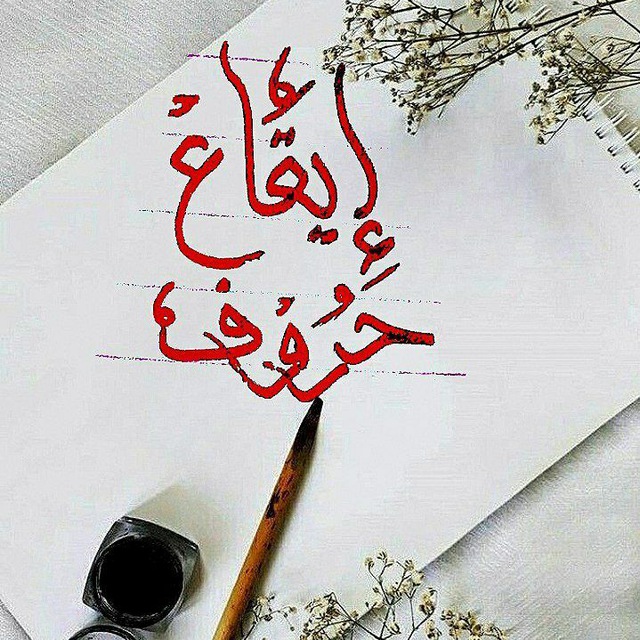 إيقاع
حروف